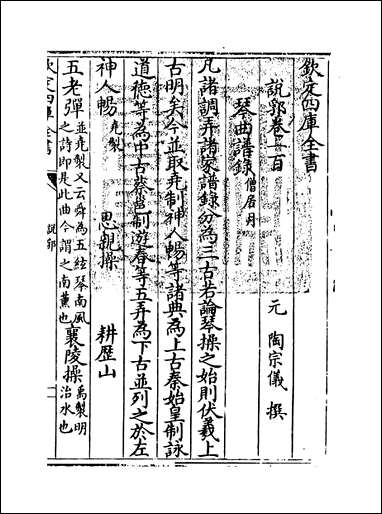 欽定四庫全書
說郛卷一百
元 陶宗儀 撰
琴曲譜錄 僧居月
凡諸調弄諸家譜錄分為三古若論琴操之始則伏羲上
古明矣今並取堯制神人暢等諸典為上古秦始皇制詠
道德等為中古蔡邕制遊春等五弄為下古並列之於左
神人暢 堯製 思親操 耕歷山
五老彈 並堯製又云舜為五絃琴南風之詩即是此曲今謂之南薰也 襄陵操 禹製明治水也
欽定四庫全書 說郛